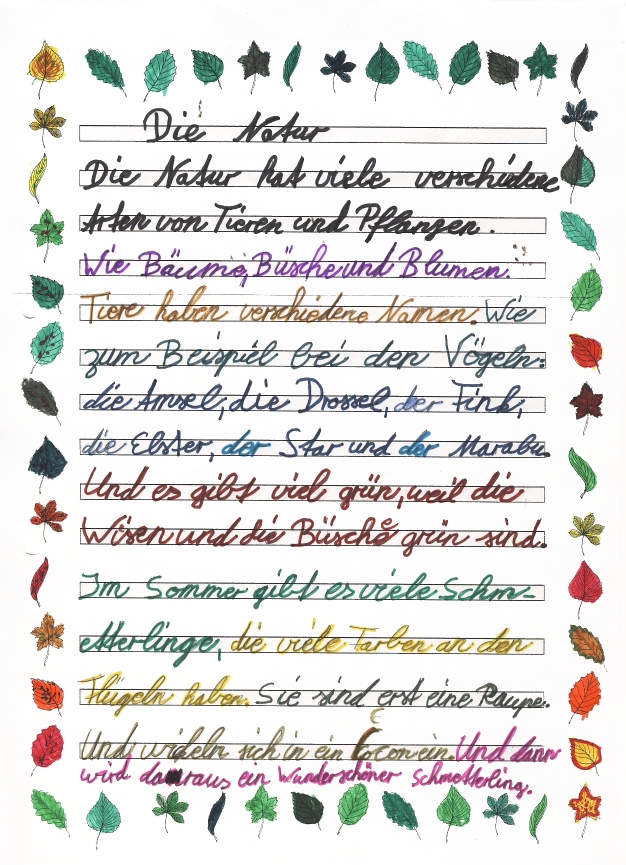 Die Natur
Die Natur hat viele verschidene
Arten von Tieren und Pflanzen.
Wie Bäume, Büsche und Blumen.
Tiere haben verschiedene Namen. Wie
zum Beispiel bei den Vögeln:
die Amsel, die Drossel, der Fink,
die Elster, der Star und der Marabu.
Und es gibt viel grün, weil die
Wisen und die Büsche grün sind.
Im Sommer gibt es viele Schm-
etterlinge, die viele Farben an den
Flügeln haben. Sie sind erst eine Raupe.
Und wickeln sich in ein Cocon ein. Und dann
wird daraus ein Wunderschöner Schmetterling.